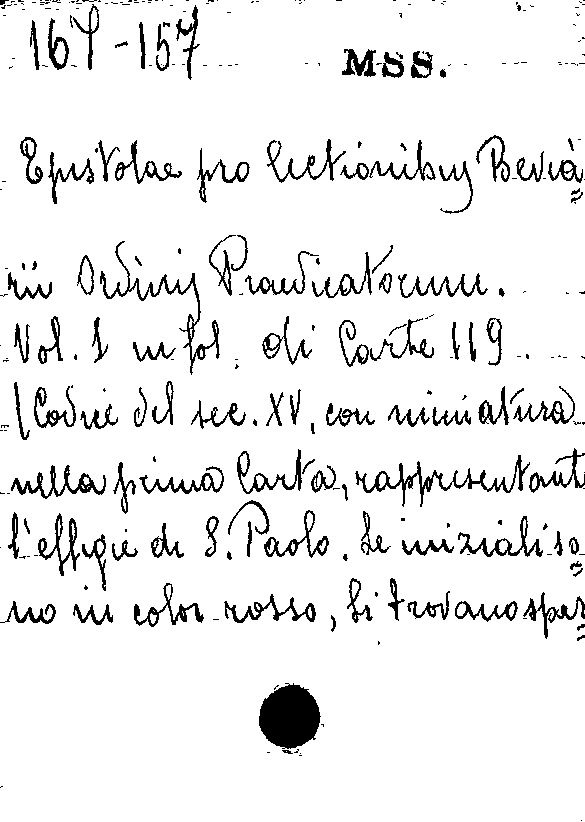 164-157 MSS.
Epistolae pro lectionibus Bevià=
rii Ordinis Praedicatorum.
Vol. 1 in fol. di Carte 119.
(Codice del sec. XV, con miniatura
nella prima Carta, rappresentante
l'effigie di S. Paolo. Le iniziali so=
no in color rosso, Si trovano spes=